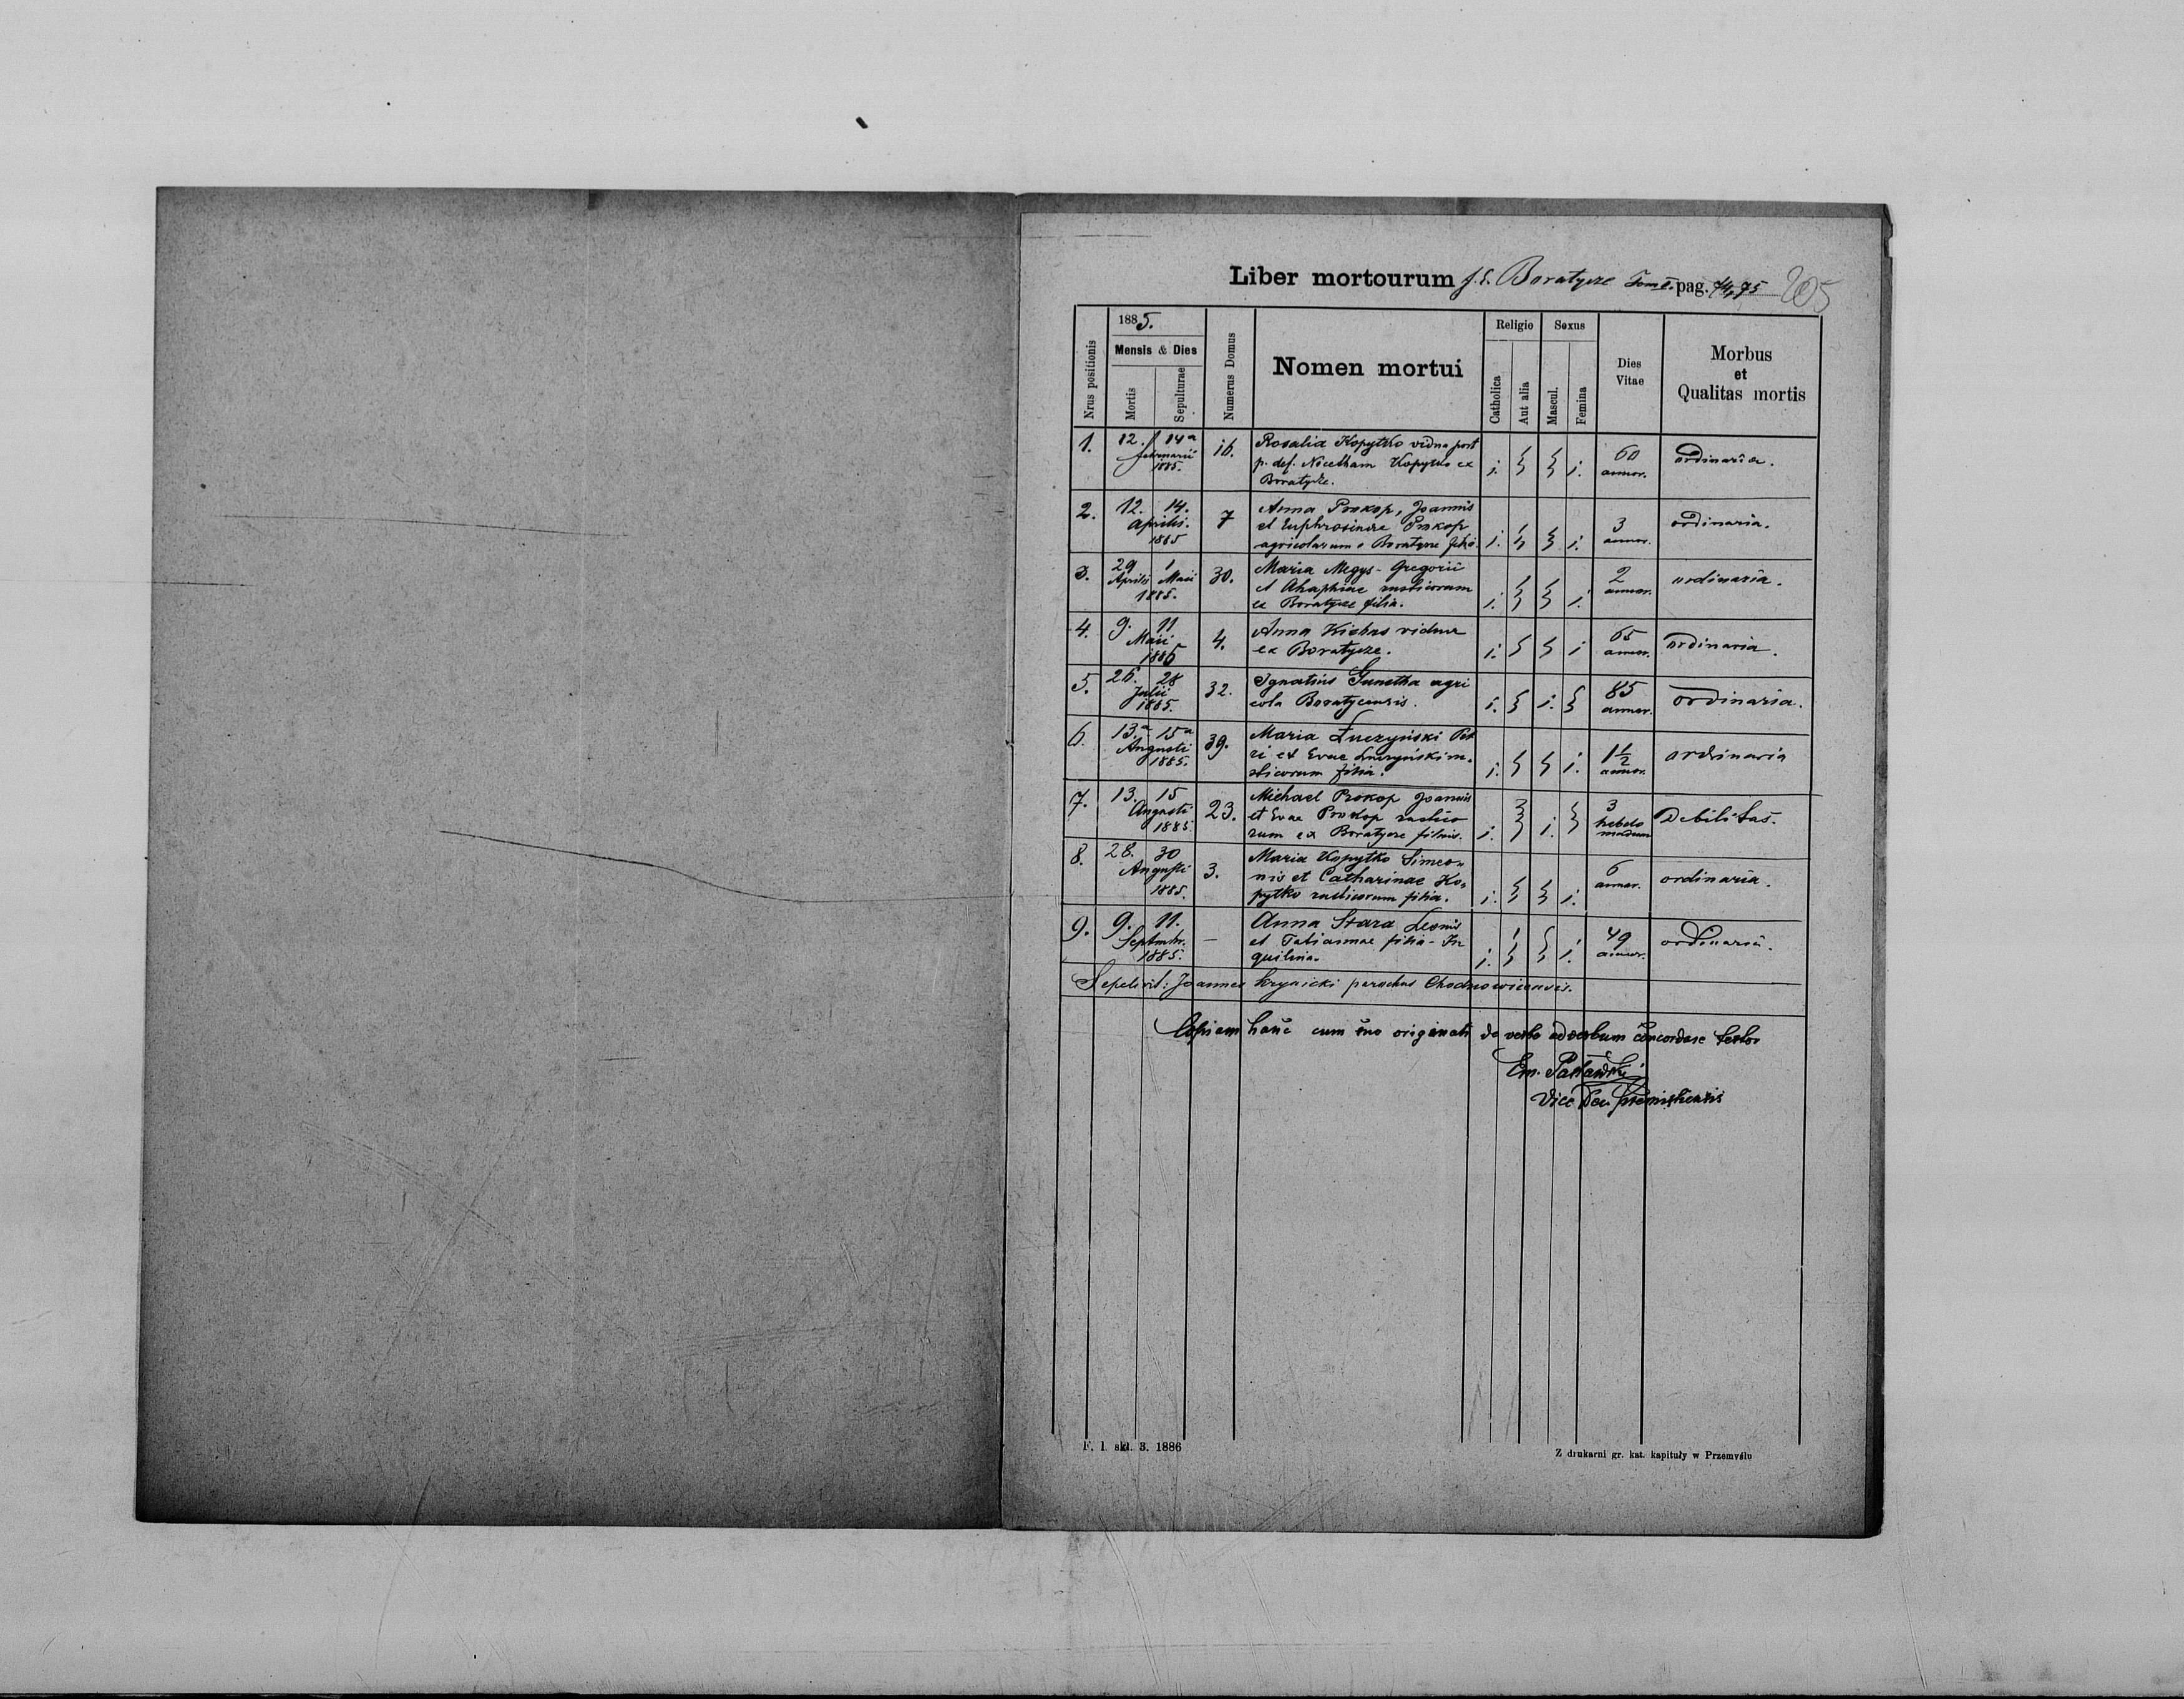 Liber mortourum f. E. Boratycze Tom I. pag. 74, 75 205
Nrus positionis
1885.
Mensis & Dies
Mortis
Sepulturae
Numerus Domus
Nomen mortui
Religio
Catholica
Aut alia
Sexus
Mascul.
Femina
Dies
Vitae
Morbus
et
Qualitas mortis
1. 12. 14a 16. Rosalia Kopytko vidua post
februarii p. def. Nicetham Kopytko ex i. i. 60 ordinaria.
1885. Boratycze. annor.
2. 12. 14. 7 Anna Prokop, Joannis
Aprilis. et Euphrosinae Prokop 3 ordinaria.
1885 agricolarum e Boratycze filia. i. i. annor.
3. 29 1 30. Maria Megys - Gregorii
Aprilis Maii et Ahaphiae rusticorum 2 ordinaria.
1885. ex Boratycze filia. i. i. annor.
4. 9. 11 4. Anna Kichas vidua 65
Maii ex Boratycze. i. i annor. ordinaria.
1885
5. 26. 28 32. Ignatius Gunetha agri 85
Julii cola Boratycensis. i. i. annor. ordinaria.
1885.
6. 13.a 15a 39. Maria Łuczyński Pet
Augusti ri et Evae Łuczyński ru- 1 1/2 ordinaria
1885. sticorum filia. i. i. annor.
7. 13. 15 23. Michael Prokop Joannis 3
Augusti et Evae Prokop rustico hebdo Debilitas.
1885 rum ex Boratycze filius. i. i. madum
8. 28. 30 3. Maria Kopytko Simeo-
Augusti nis et Catharinae Ko- 6 ordinaria.
1885. pytko rusticorum filia. i. i. annor.
9. 9. 11. — Anna Stara Leonis
Septmbr. et Tatiannae filia - In 49 ordinaria.
1885. quilina. i. i. annor.
Sepelivit: Joannes Krynicki parochus Chodnowicensis.
Copiam hanc cum suo originali de verbo ad verbum concordare testor
Em. Pasławski
Vice Dec. Premisliensis
F. l. skł. 3. 1886
Z drukarni gr. kat. kapituły w Przemyślu